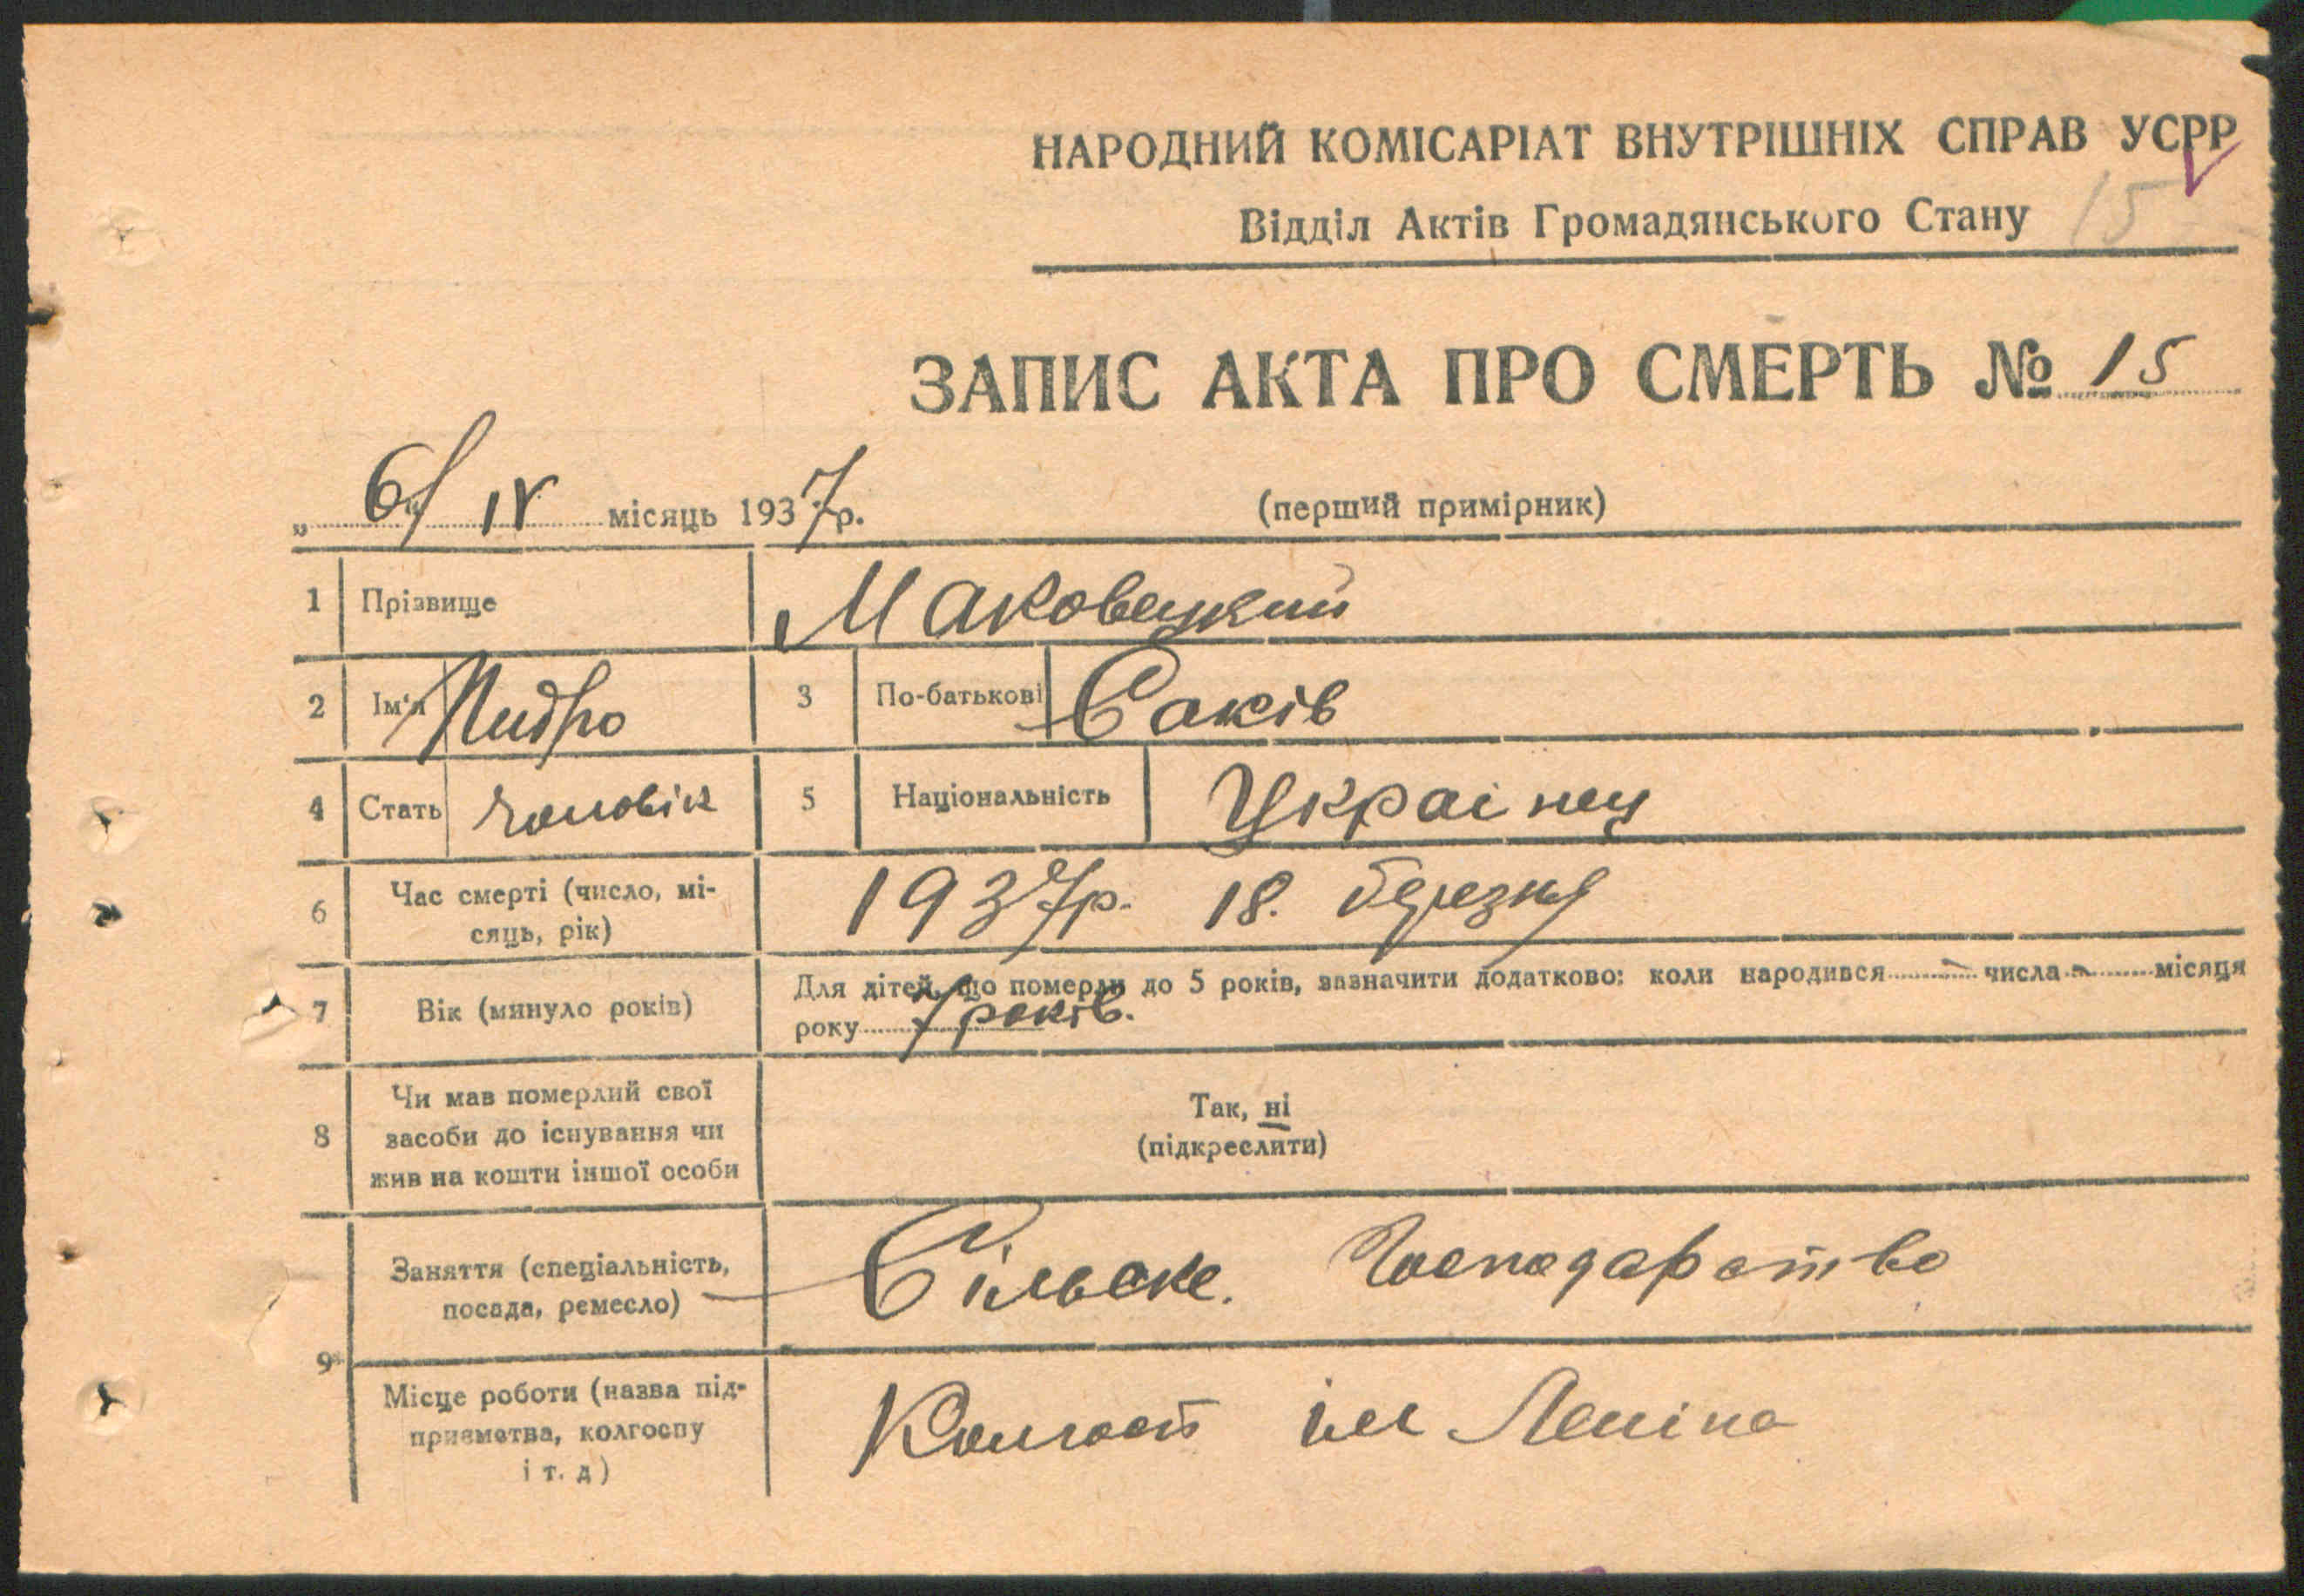 НАРОДНИЙ КОМІСАРІАТ ВНУТРІШНІХ СПРАВ УСРР
Відділ Актів Громадянського Стану 15
ЗАПИС АКТА ПРО СМЕРТЬ № 15
„ 6 " IV місяць 1937 р. (перший примірник)
1 Прізвище Маковецкий
2 Ім'я Пидро 3 По-батькові Саків
4 Стать чоловік 5 Національність Украінец
6 Час смерті (число, мі-
сяць, рік) 1937р. 18. березня
7 Вік (минуло років) Для дітей, що померли до 5 років, зазначити додатково: коли народився - числа - місяця
року 7 років.
8 Чи мав померлий свої
засоби до існування чи
жив на кошти іншої особи
Так, ні
(підкреслити)
9 Заняття (спеціальність,
посада, ремесло) Сільске. Господарство
Місце роботи (назва під-
приємства, колгоспу
і т. д) Колгосп ім Леніна